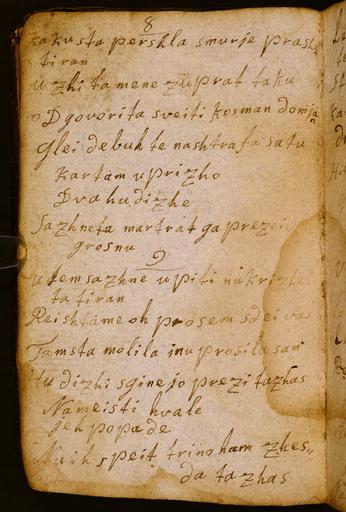 8
kaku sta pershla smurje prast=
tiran
uzhi ta mene zuprat taku
oDgovorita sveiti kosman domja
glei debuh te nashtrafa satu
kartam uprizho
Dva hudizhe
sazhneta martrat ga prezei
grosnu
9
u tem sazhne upiti nu kriz
ta tiran
Reishtame oh prosem sdei vas
Tamsta molila inu prosila san
Hudizhi sginejo prezi tazhas
Nameisti hvale
jeh popade
Nuih speit trinoham zhes=
da tazhas